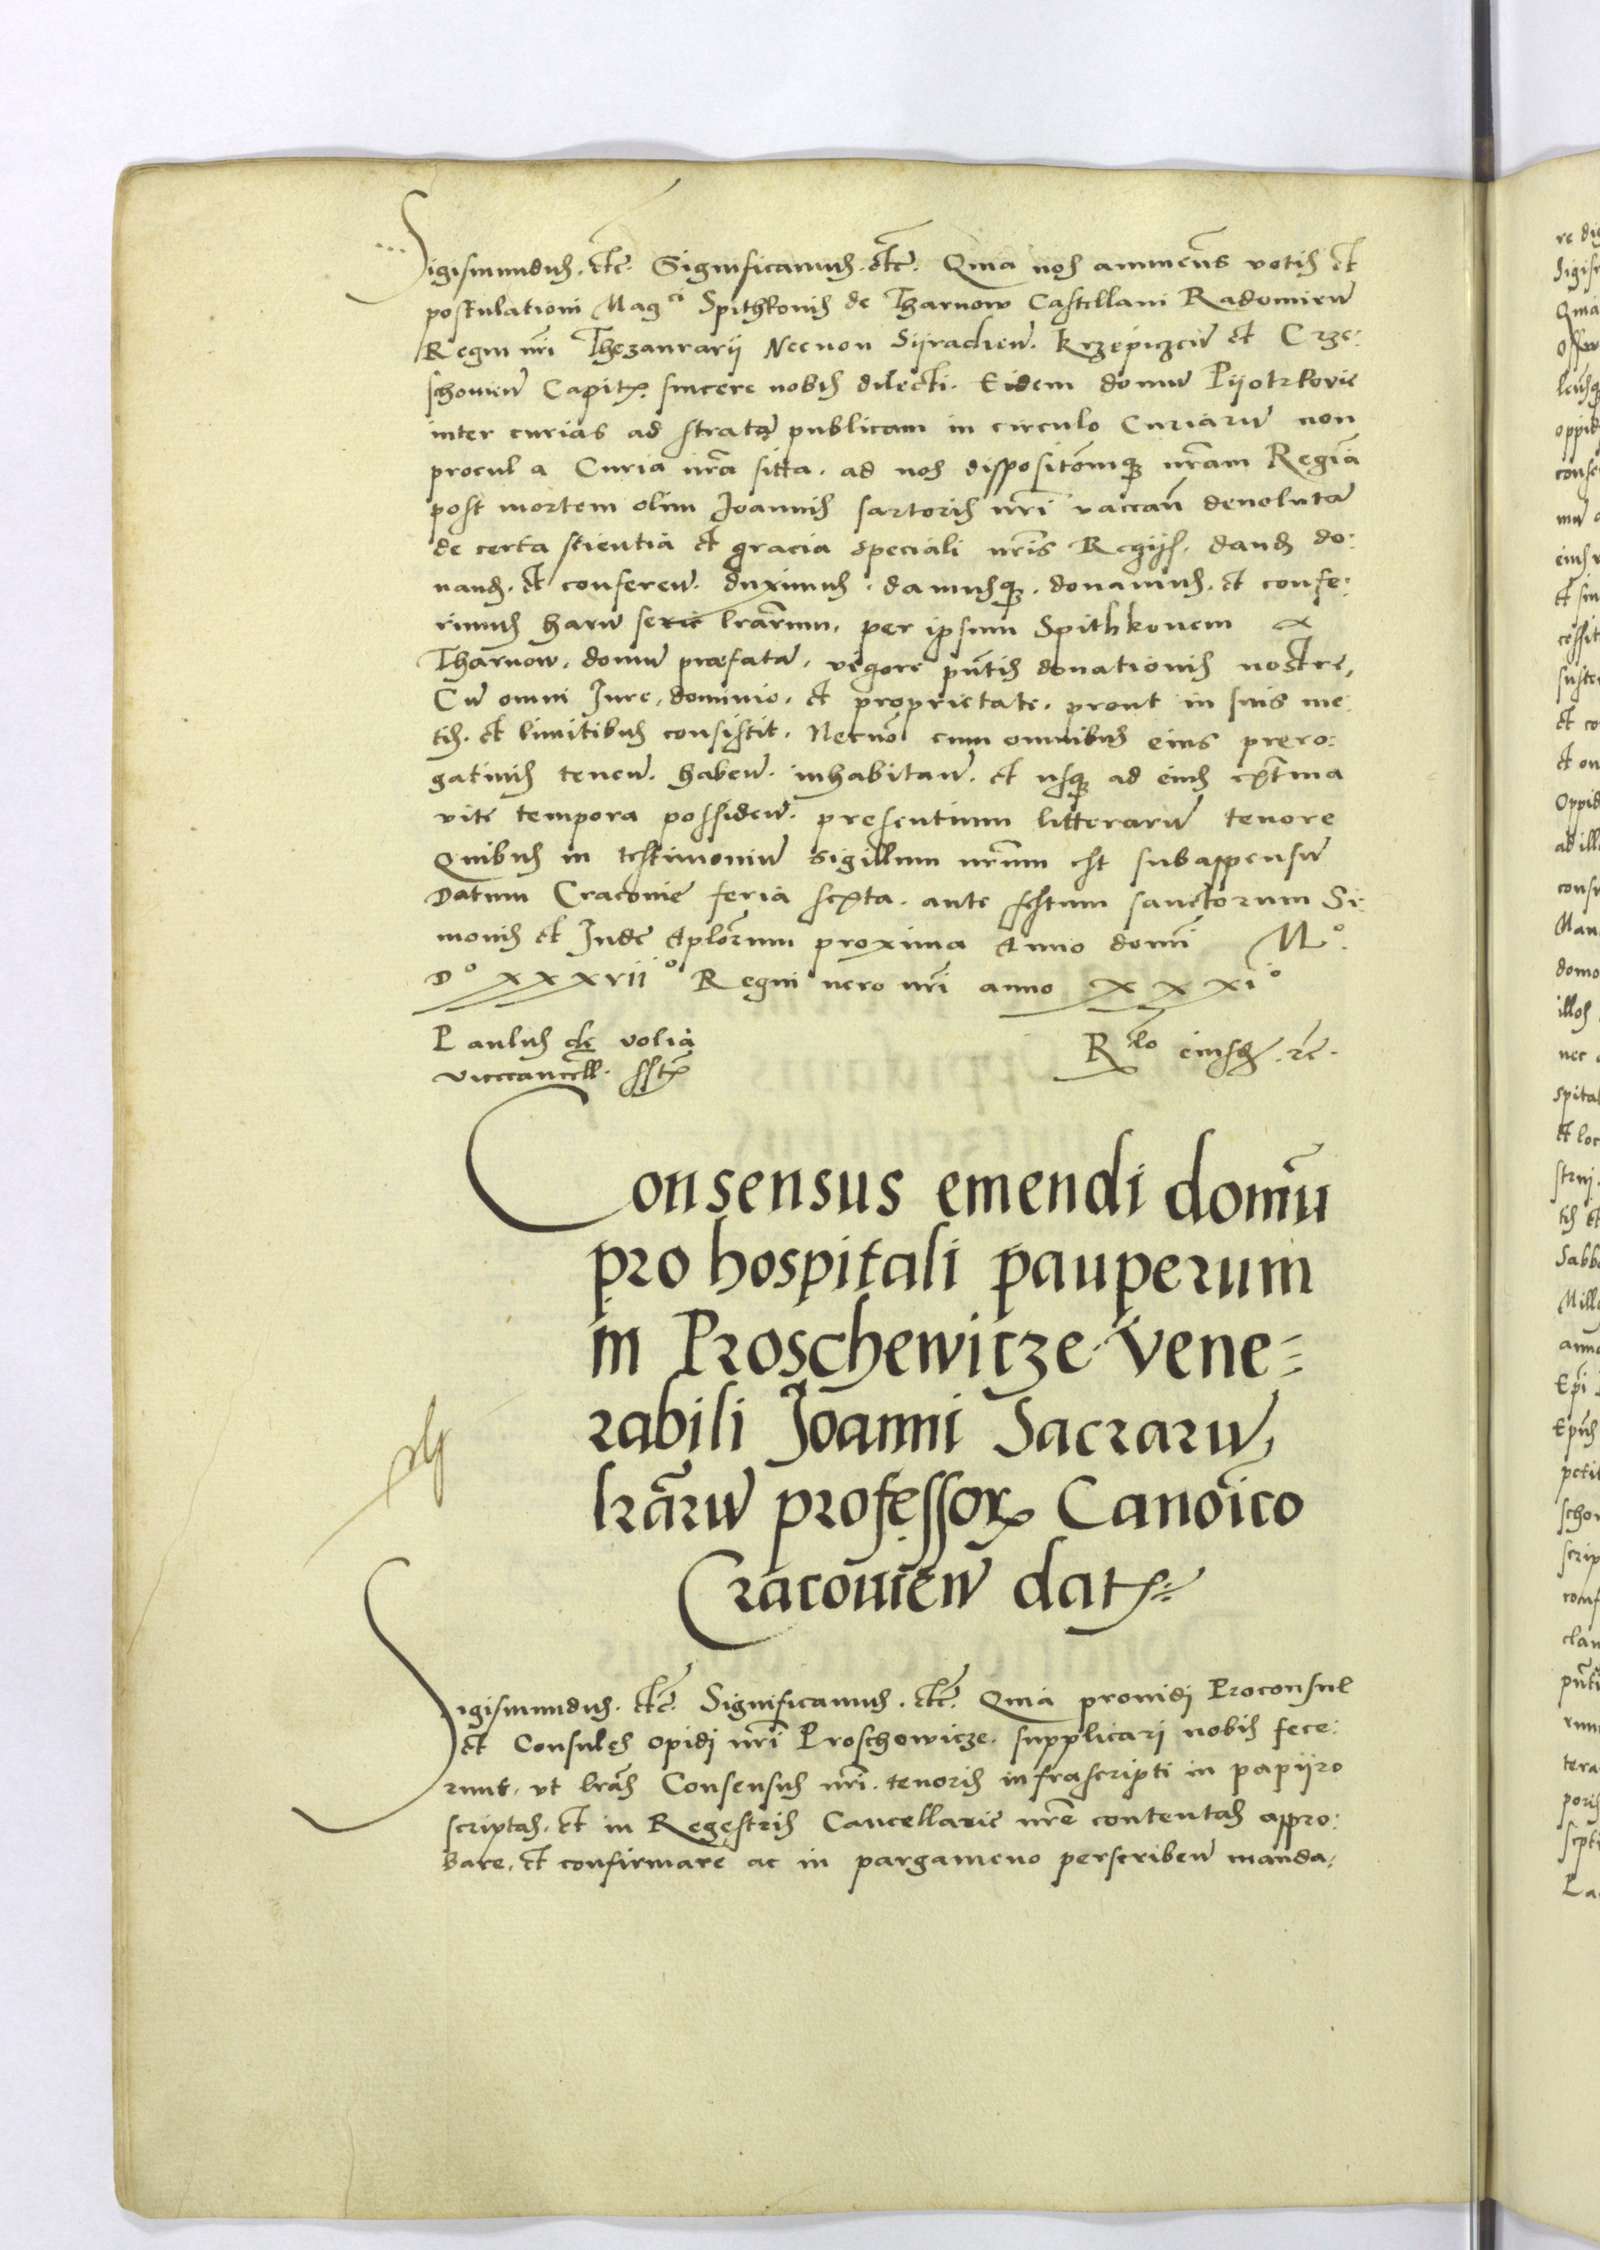 Sigismundus. etc̃. Significamus. etc̃. Quia nos annuen̄s votis et
postulationi Mag.ci Spithkonis de Tharnow Castellani Radomien̄
Regni nr̃i Thezaurarij Necnon Sijradien̄. Krzepiczen̄ et Crze:
schowien̄ Capit. sincere nobis dilecti. Eidem domū Pijotrkovie
inter curias ad stratā publicam in circulo Curiarū non
procul a Curia nr̃a sitta. ad nos dispositõmq; nr̃am Regiā
post mortem olim Joannis sartoris nr̃i vaccan̄ devolutā
de certa scientia et gracia speciali nr̃is Regijs. dand̄ do:
nand̄. et conferen̄. duximus. damusq;. donamus. et confe:
rimus harū serie lr̃arum. per ipsum Spithkonem
Tharnow. domū præfatā. vigore pn̄tis donationis nostre,
Cū omni Jure, dominio. et proprietate. prout in suis me:
tis. et limitibus consistit. Necnõ cum omnibus eius prero:
gativis tenen̄. haben̄. inhabitan̄. et usq; ad eius extrema
vite tempora possiden̄. presentium litterarū tenore
Quibus in testimoniū sigillum nr̃um est subappensū
Datum Cracovie feria sexta. ante festum sanctorum Si:
monis et Jude Aplo͞rum proxima Anno domi͞ Mo.
Do xxxvijo Regni vero nr̃i anno xxxio
Paulus de volia
vicecancell. sst.
Rlo eiusd̄. rc̃.
Consensus emendi domū
pro hospitali pauperum
in Proschewicze Vene=
rabili Joanni Sacrarū
lr̃arū professor. Canoīco
Cracovien̄ dat.
Sigismundus. etc̃. Significamus. etc̃. Quia providi Proconsul
et Consules opidi nr̃i Proschowicze. supplicari nobis fece:
runt. ut lr̃as Consensus nr̃i. tenoris infrascripti in papijro
scriptas. et in Regestris Cancellarie nr̃e contentas appro:
bare. et confirmare ac in pargameno perscriben̄ manda: